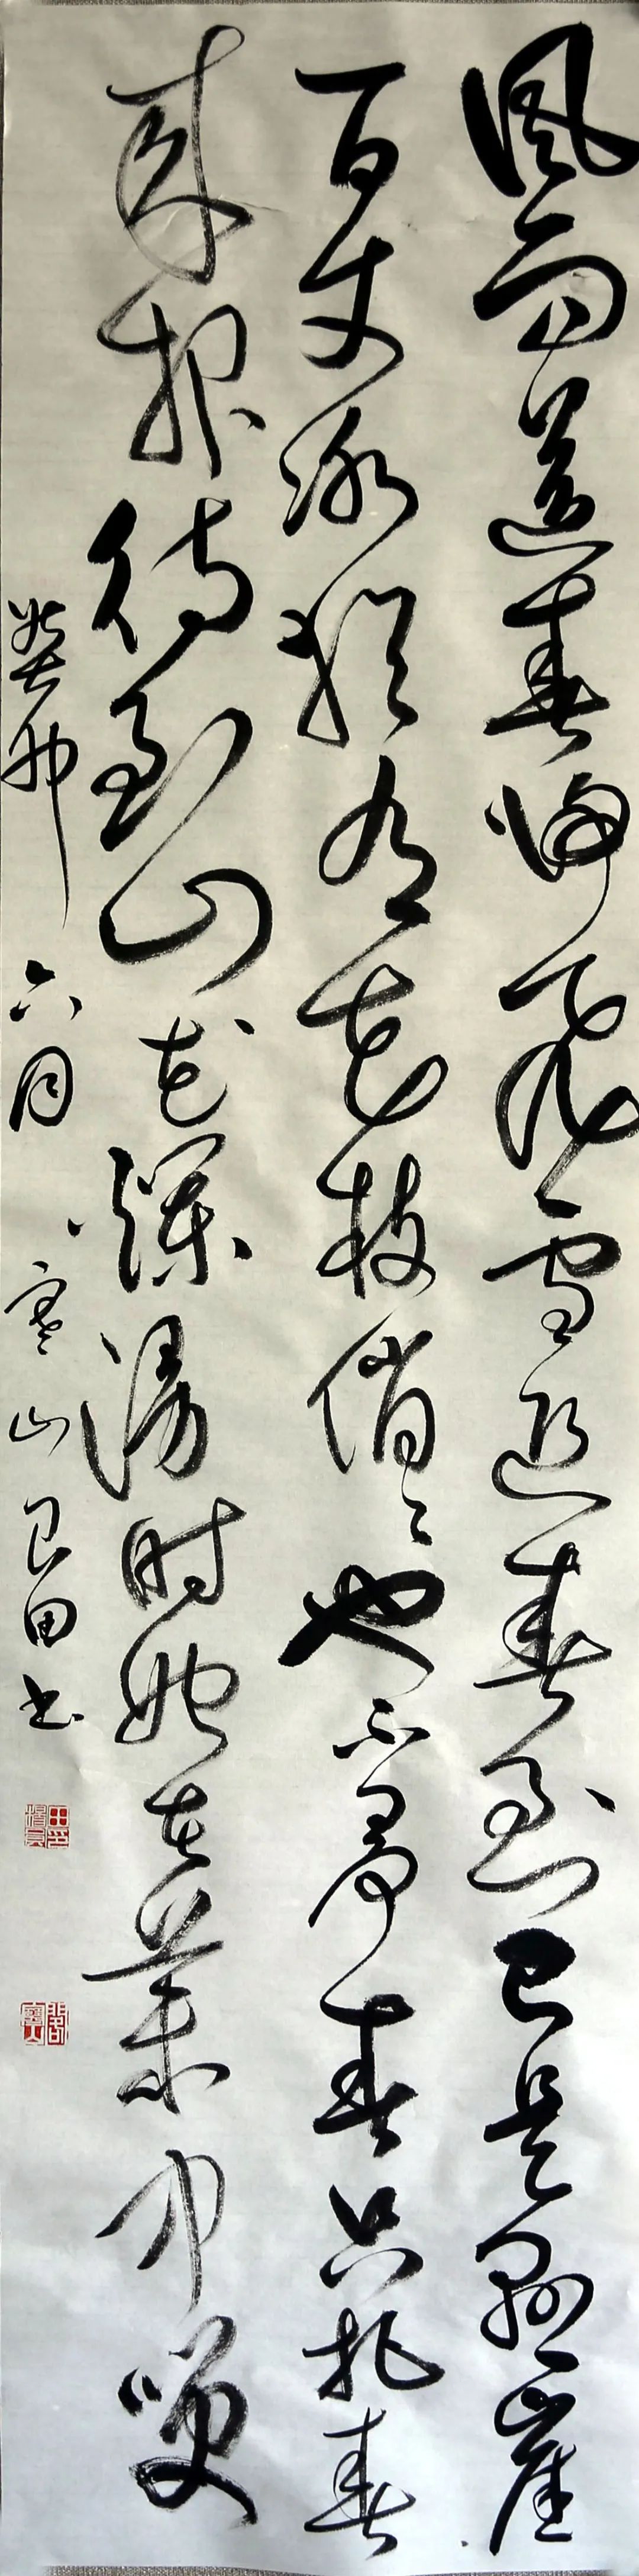 風雨送春归飛雪迎春到已是懸崖
百丈冰猶有花枝俏々也不争春只把春
来报待到山花爛漫时她在叢中咲
癸卯六月寒山良田书